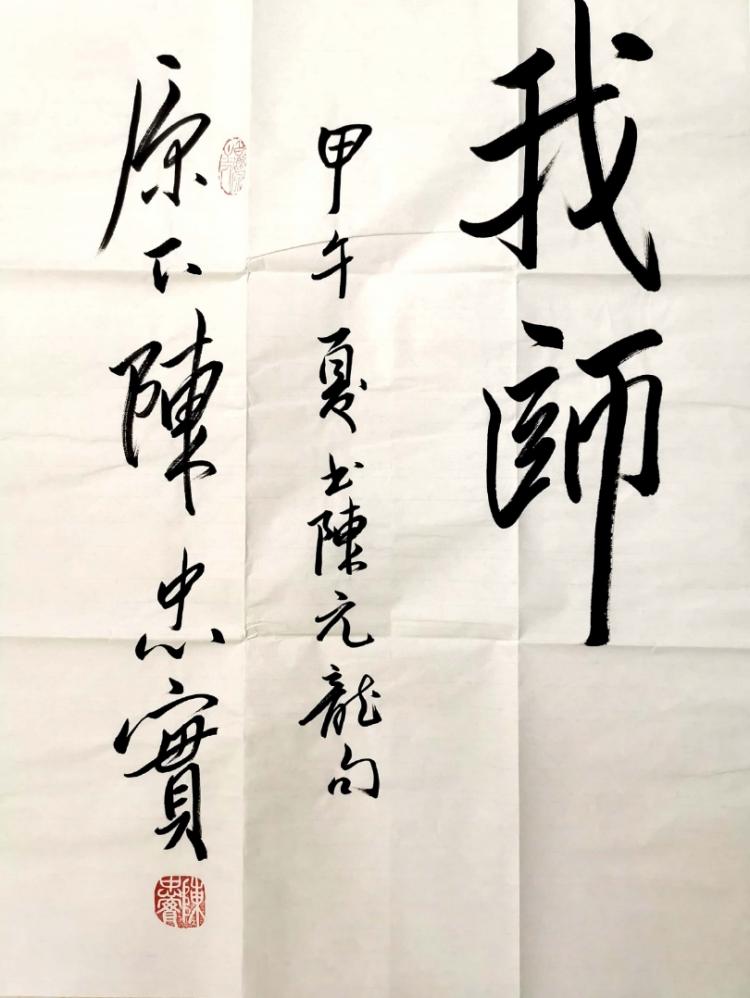 我師
甲午夏书陳元龍句
原下陳忠實
陳忠實